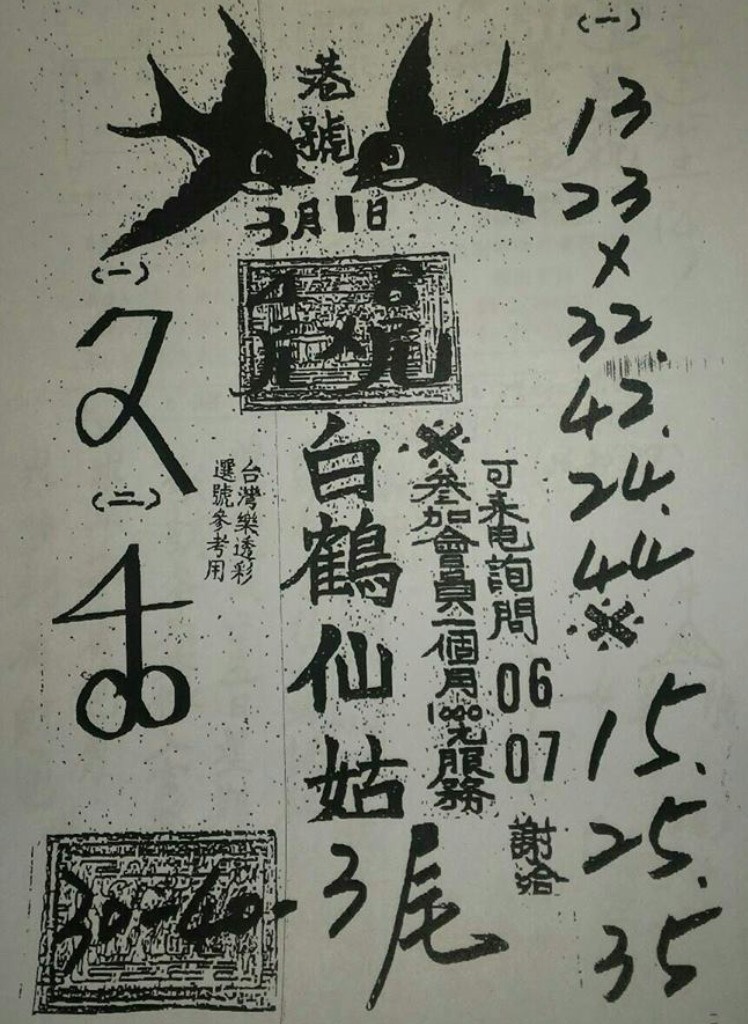 港號
3月1日
4尾×6尾
(一)
2
(二)
台灣樂透彩
選號參考用
白鶴仙姑
※參加會員一個月1000元服務
可來电詢問 06
07 謝洽
30-40-3尾
(一)
13
23
×
32.
42.
24.
44
※
15.
25.
35